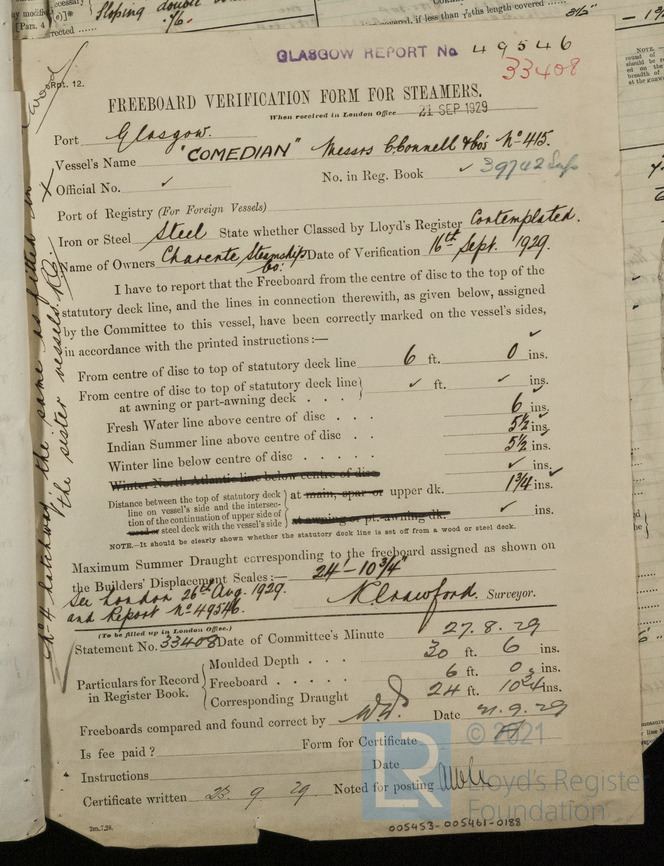 Sloping double
[Par. 4
GLASGOW REPORT No 49546
33408
Rpt. 12.
FREEBOARD VERIFICATION FORM FOR STEAMERS.
When received in London Office 21 SEP 1929
Port Glasgow.
Vessel's Name "COMEDIAN" Messrs C. Connell & Co's No 415.
Official No. ✓ No. in Reg. Book ✓ 39742
Port of Registry (For Foreign Vessels)
Iron or Steel Steel State whether Classed by Lloyd's Register Contemplated.
Name of Owners Charente Steamship Co. Date of Verification 16th Sept. 1929.
I have to report that the Freeboard from the centre of disc to the top of the
statutory deck line, and the lines in connection therewith, as given below, assigned
by the Committee to this vessel, have been correctly marked on the vessel's sides,
in accordance with the printed instructions:—
From centre of disc to top of statutory deck line 6 ft. 0 ins.
From centre of disc to top of statutory deck line
at awning or part-awning deck . . . ✓ ft. ✓ ins.
Fresh Water line above centre of disc . . . 6 ins.
Indian Summer line above centre of disc . . 5½ ins.
Winter line below centre of disc . . . . . 5½ ins.
Winter North Atlantic line below centre of disc ✓ ins.
Distance between the top of statutory deck
line on vessel's side and the intersec-
tion of the continuation of upper side of
wood or steel deck with the vessel's side
at main, spar or upper dk. 1¾ ins.
at awning or pt. awning dk. ✓ ins.
NOTE.—It should be clearly shown whether the statutory deck line is set off from a wood or steel deck.
Maximum Summer Draught corresponding to the freeboard assigned as shown on
the Builders' Displacement Scales:— 24'-10¾"
See London 26th Aug. 1929.
and Report No 49546.
N. Crawford. Surveyor.
(To be filled up in London Office.)
Statement No. 33408 Date of Committee's Minute 27.8.29
Particulars for Record
in Register Book.
Moulded Depth . . . . 30 ft. 6 ins.
Freeboard . . . . . 6 ft. 0 ins.
Corresponding Draught 24 ft. 10¾ ins.
Freeboards compared and found correct by Date 21.9.29
Is fee paid? Form for Certificate
Instructions Date
Certificate written 23 9 29 Noted for posting
2m.7.28.
005453-005461-0188
No 4 hatchways the same as fitted in
the sister vessels.
LR © 2021
Lloyd's Register
Foundation